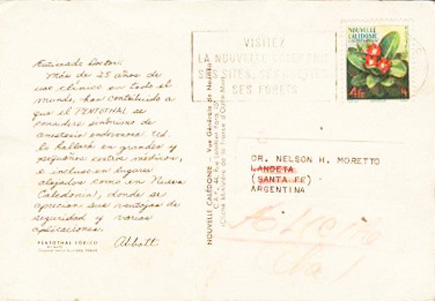 Estimado Doctor:
Más de 25 años de
uso clínico en todo el
mundo, han contribuido a
que el PENTOTHAL se
considere sinónimo de
anestesia endovenosa. Ud.
lo hallará en grandes y
pequeños centros médicos,
e incluso en lugares
alejados como en Nueva
Caledonia, donde se
aprecian sus ventajas de
seguridad y varias
aplicaciones.
PENTOTHAL SÓDICO
Abbott
NOUVELLE CALÉDONIE - Vue Générale de Nouméa
VISITEZ
LA NOUVELLE CALEDONIE
SES SITES, SES
SES FORETS
NOUVELLE
CALÉDONIE
4F
DR. NELSON H. MORETTO
LANDETA
(SANTA FE)
ARGENTINA